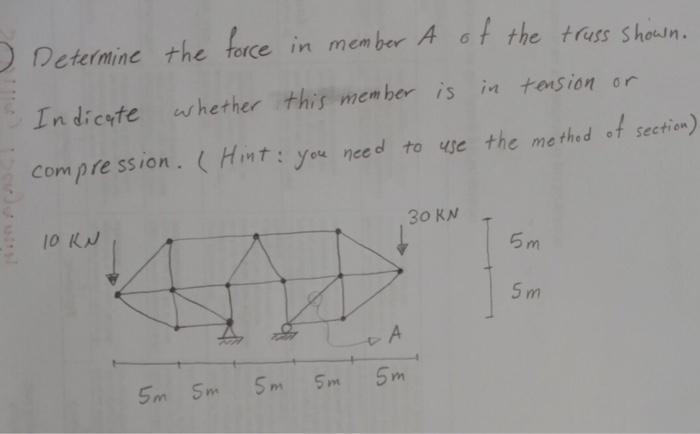 Determine the force in member A of the truss shown.
Indicate whether this member is in tension or
compression. (Hint: you need to use the method of section)
10 KN
30 KN
5m
5m
A
5m 5m 5m 5m 5m